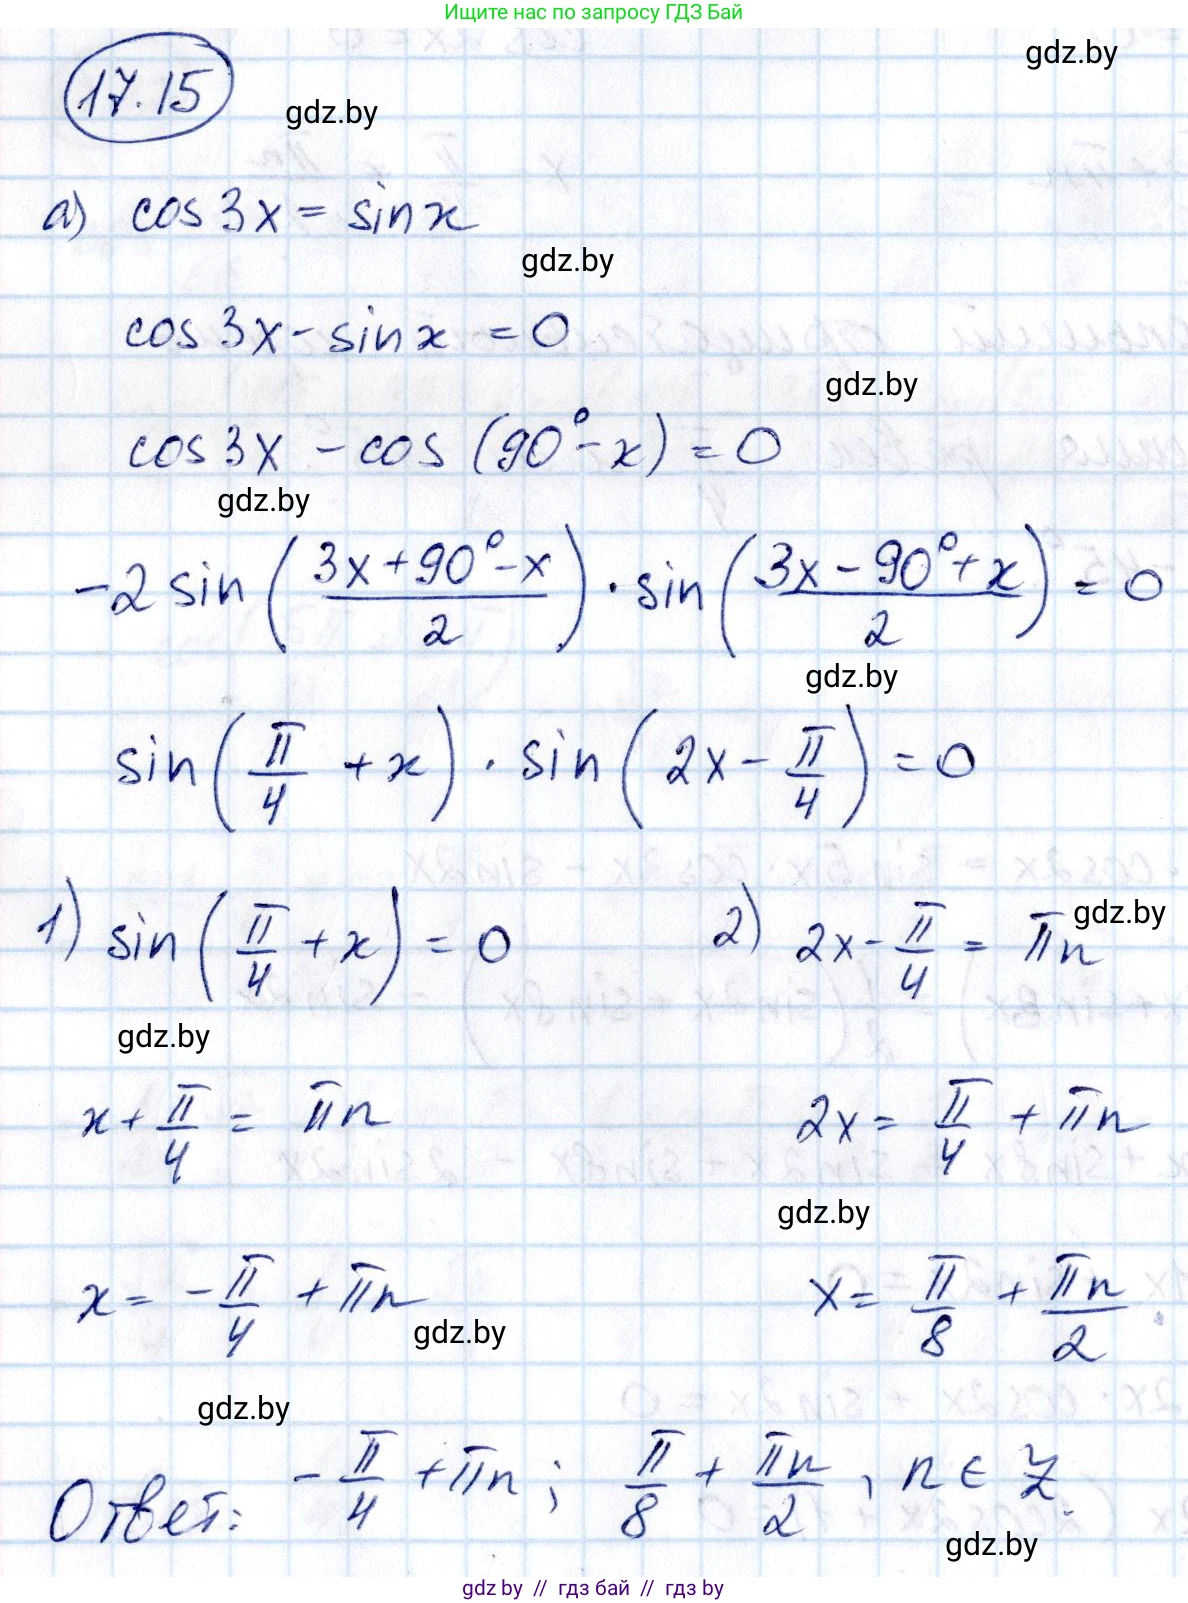 Ищите нас по запросу ГДЗ Бай
gdz.by
17.15
gdz.by
а) cos3x = sinx
gdz.by
cos3x - sinx = 0
gdz.by
cos3x - cos(90° - x) = 0
gdz.by
-2 sin((3x + 90° - x)/2) · sin((3x - 90° + x)/2) = 0
gdz.by
sin(π/4 + x) · sin(2x - π/4) = 0
1) sin(π/4 + x) = 0 2) 2x - π/4 = πn
gdz.by
gdz.by
x + π/4 = πn 2x = π/4 + πn
gdz.by
x = -π/4 + πn x = π/8 + πn/2
gdz.by
gdz.by
Ответ: -π/4 + πn; π/8 + πn/2, n ∈ Z.
gdz.by
gdz.by // гдз бай // гдз by